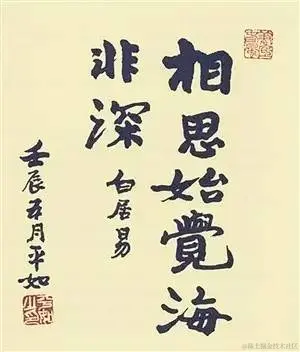 相思始覺海
非深
白居易
壬辰五月平如
@稀土掘金技术社区